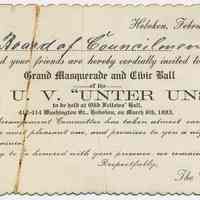 Hoboken, Febru
Board of Councilmen
d your friends are hereby cordially invited to
Grand Masquerade and Civic Ball
of the
U. V. "UNTER UNS
to be held at Odd Fellows' Hall,
412-414 Washington St., Hoboken, on March 8th, 1893.
rrangement Committee has taken utmost care
most pleasant one, and promises to you a nigh
ment.
g to be honored with your presence, we remain
Respectfully,
The